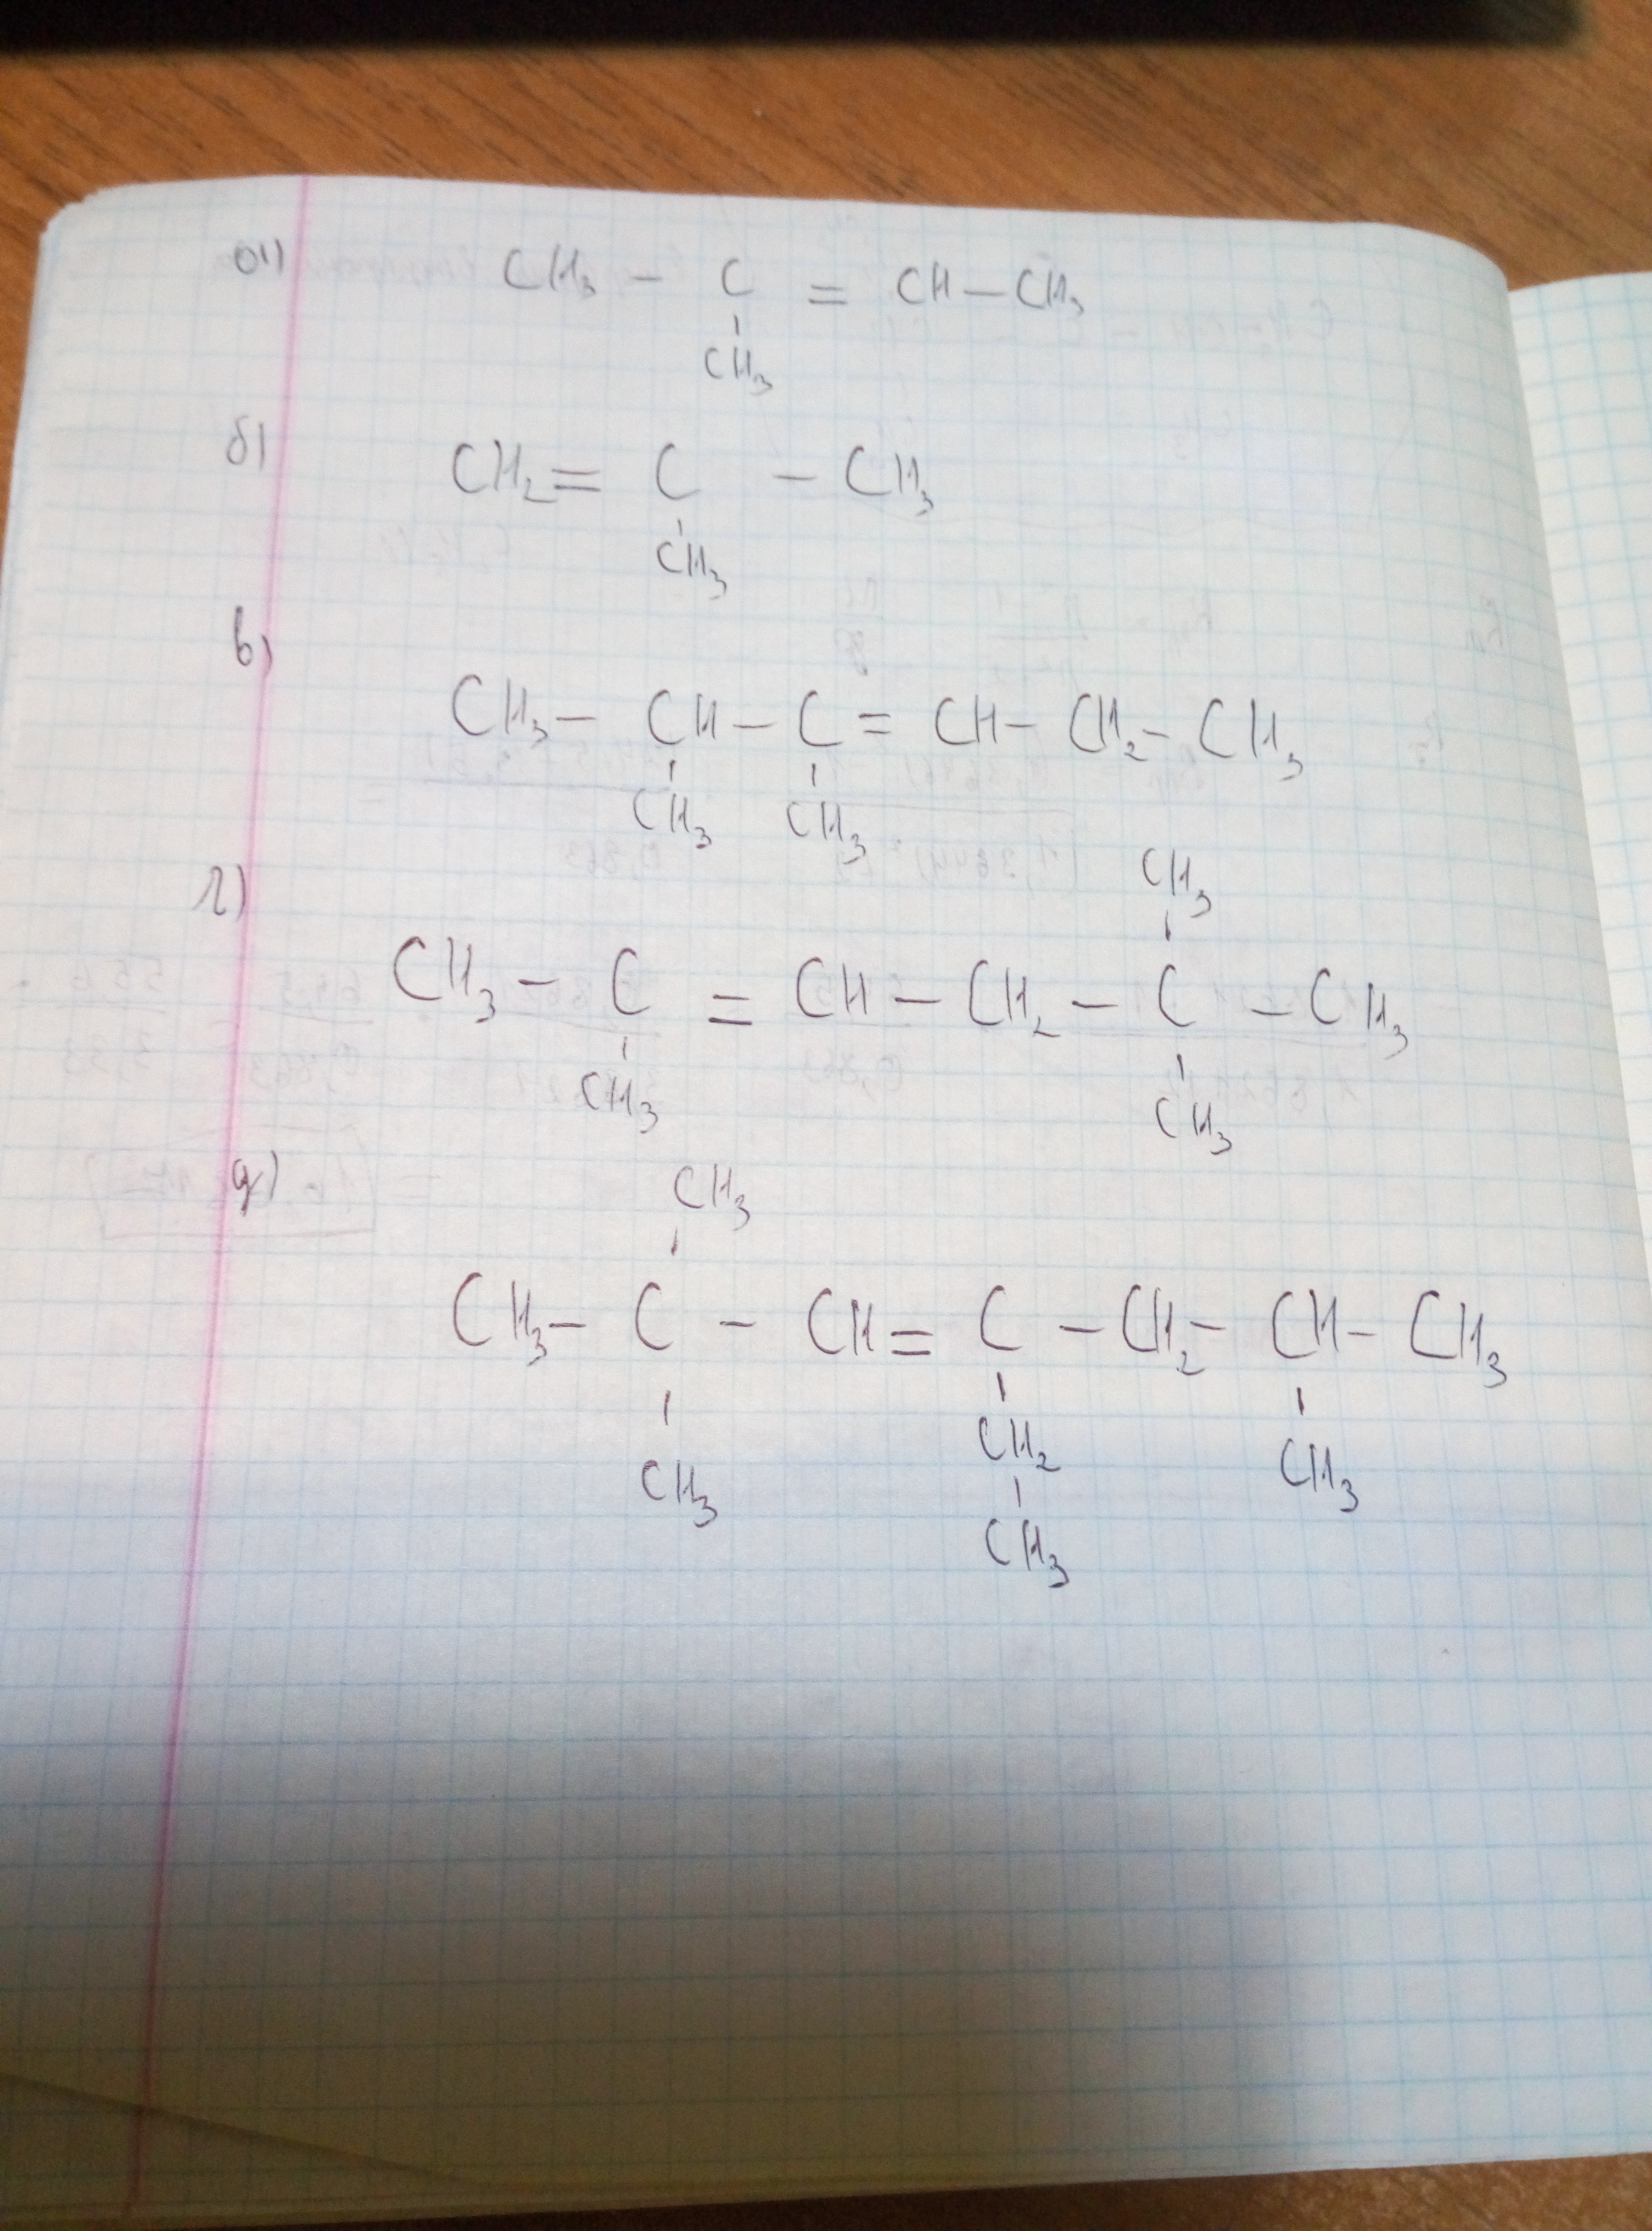 а)
CH₃ – C = CH – CH₃
CH₃
б)
CH₂ = C – CH₃
CH₃
в)
CH₃ – CH – C = CH – CH₂ – CH₃
CH₃ CH₃
г)
CH₃
CH₃ – C = CH – CH₂ – C – CH₃
CH₃ CH₃
д)
CH₃
CH₃ – C – CH = C – CH₂ – CH – CH₃
CH₃ CH₂ CH₃
CH₃